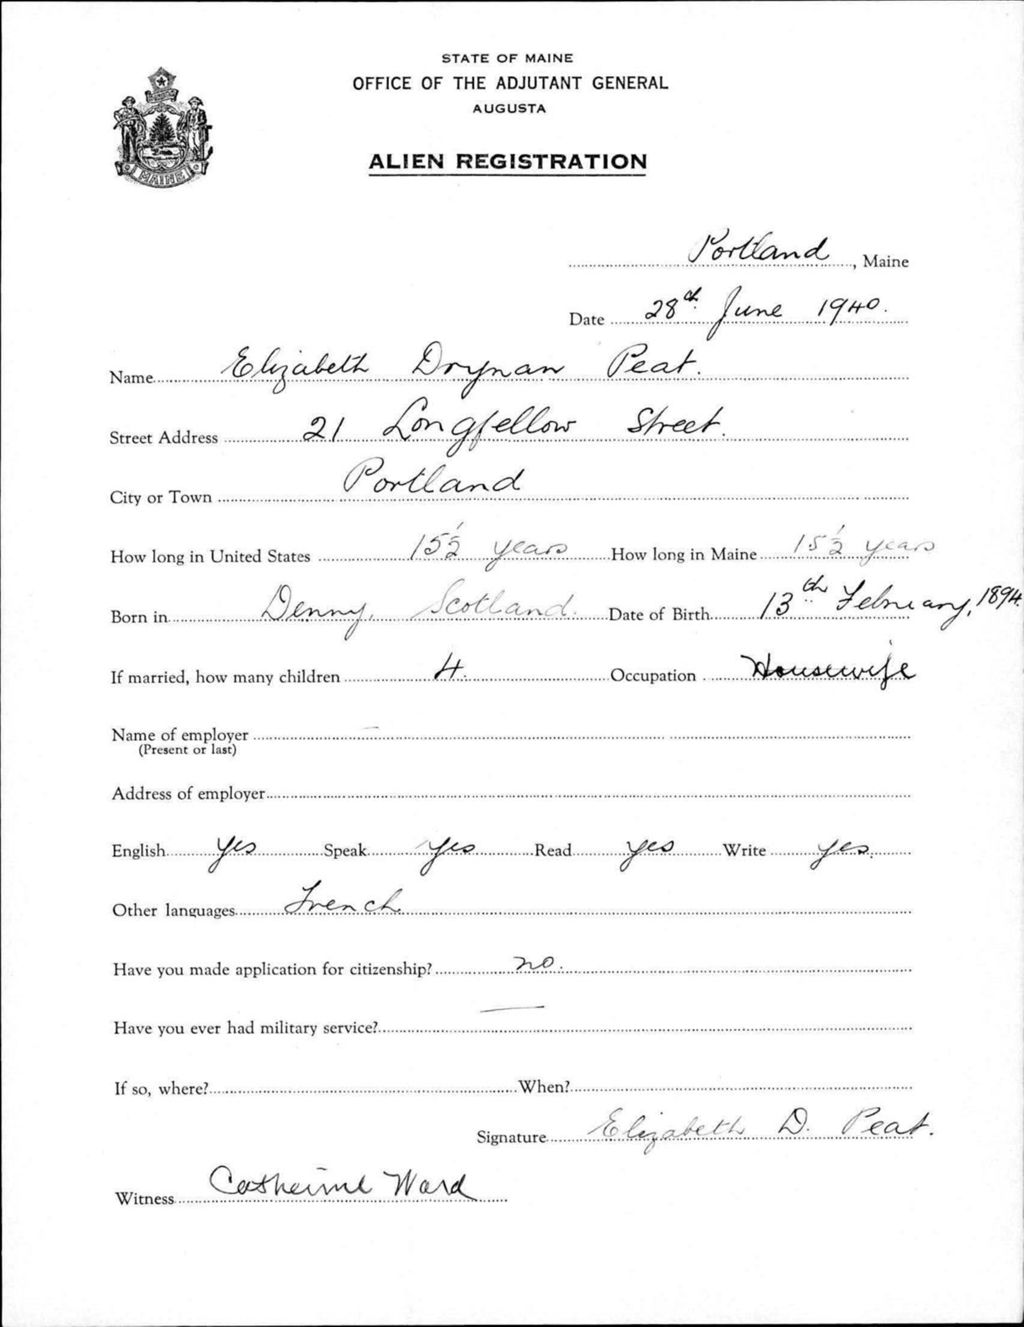 STATE OF MAINE
OFFICE OF THE ADJUTANT GENERAL
AUGUSTA
ALIEN REGISTRATION
MAINE
Portland, Maine
Date 28th June 1940.
Name Elizabeth Drynan Peat.
Street Address 21 Longfellow Street.
City or Town Portland
How long in United States 15½ years How long in Maine 15½ years
Born in Denny, Scotland. Date of Birth 13th February, 1894.
If married, how many children 4. Occupation Housewife
Name of employer —
(Present or last)
Address of employer
English yes Speak yes Read yes Write yes.
Other languages French
Have you made application for citizenship? no.
Have you ever had military service? —
If so, where? When?
Signature Elizabeth D. Peat.
Witness Catherine Ward